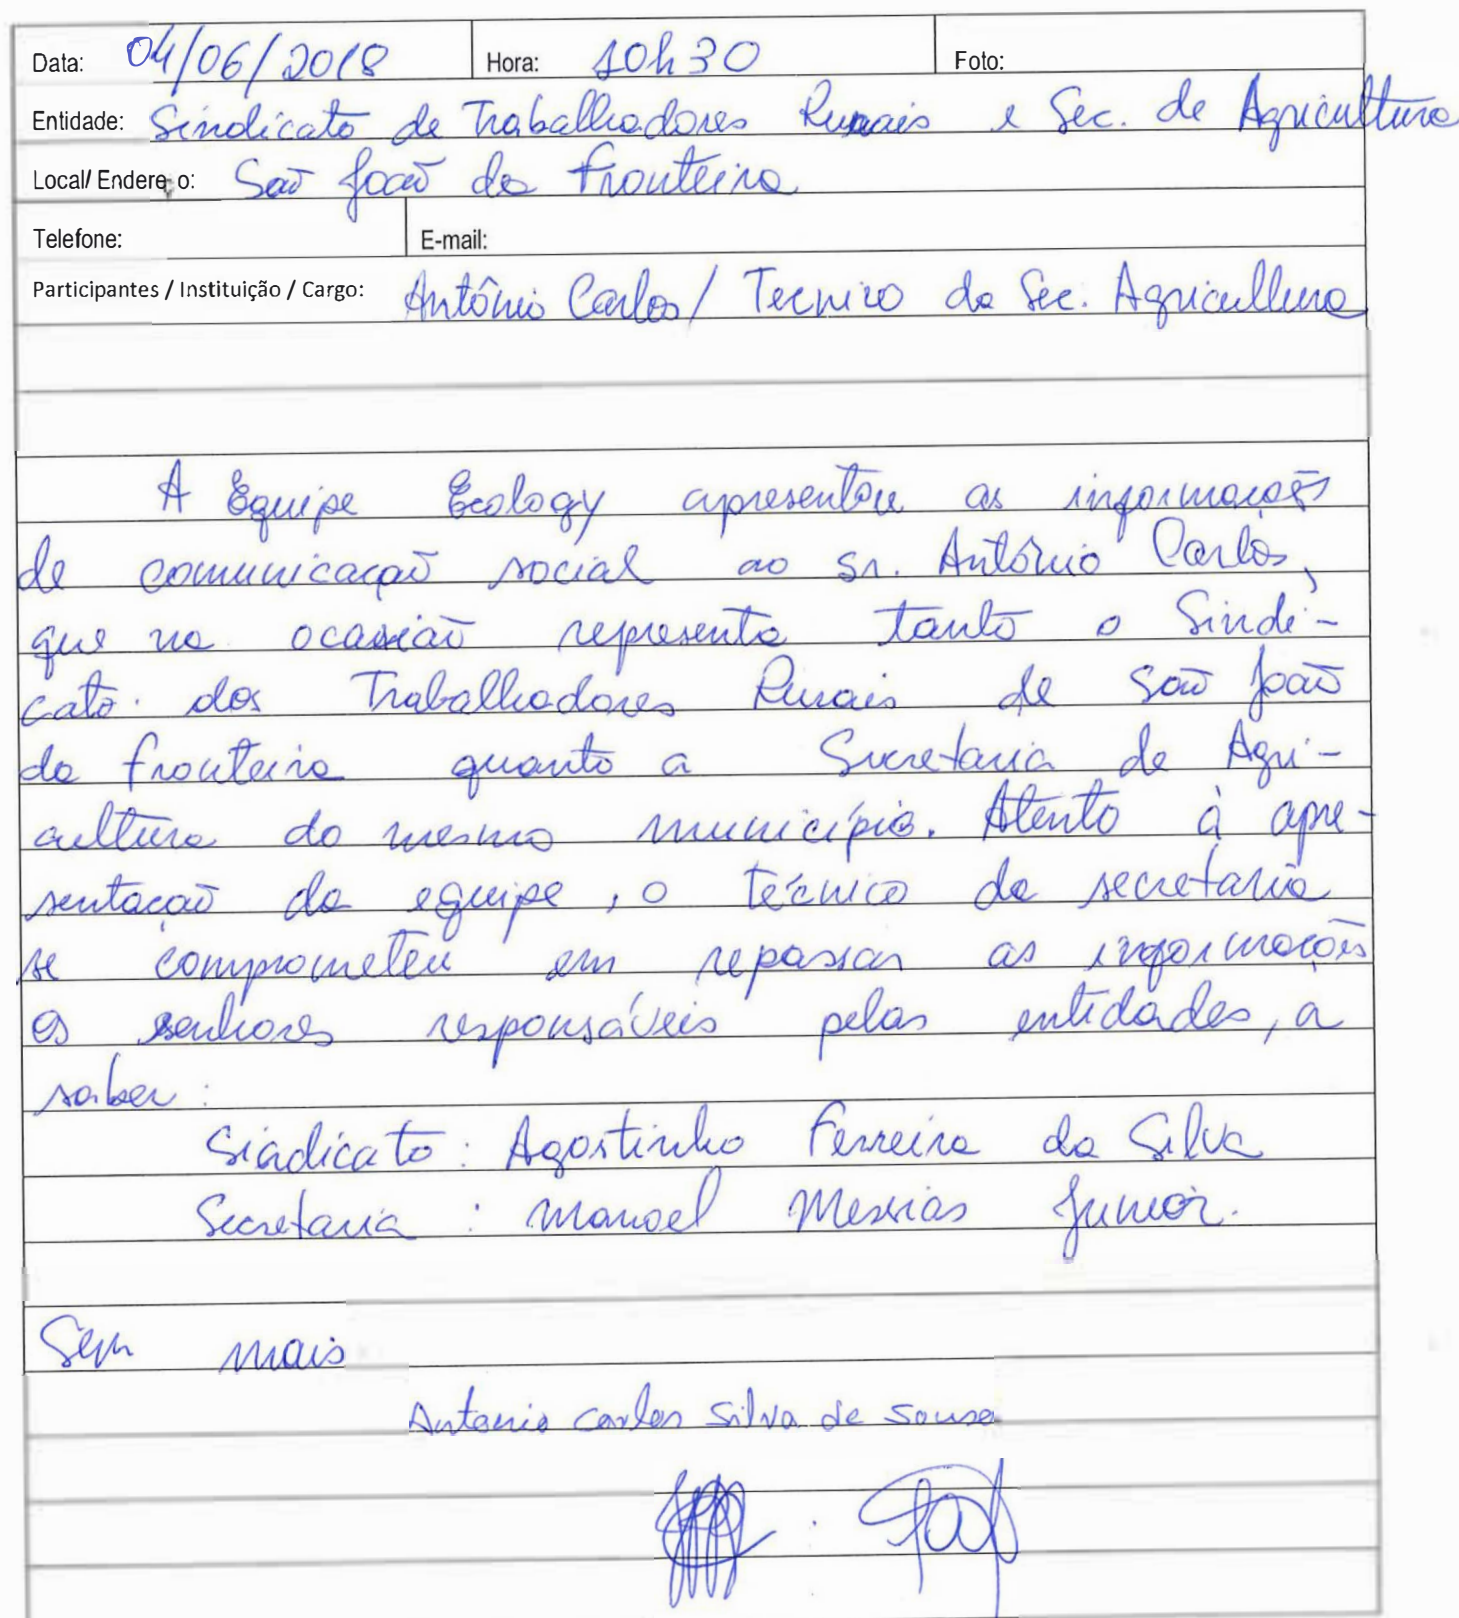 Data: 04/06/2018 Hora: 10h30 Foto:
Entidade: Sindicato de Trabalhadores Rurais e Sec. de Agricultura
Local/ Endere o: São João da Fronteira
Telefone: E-mail:
Participantes / Instituição / Cargo: Antônio Carlos / Tecnico da Sec. Agricultura
A Equipe Ecology apresentou as informações
de comunicação social ao sr. Antônio Carlos,
que na ocasião representa tanto o Sindi-
cato dos Trabalhadores Rurais de São João
da Fronteira quanto a Secretaria de Agri-
cultura do mesmo município. Atento à apre-
sentação da equipe, o técnico da secretaria
se comprometeu em repassar as informações
os senhores responsáveis pelas entidades, a
saber:
Sindicato: Agostinho Ferreira da Silva
Secretaria: Manoel Messias Junior.
Sem mais
Antonio Carlos Silva de Sousa